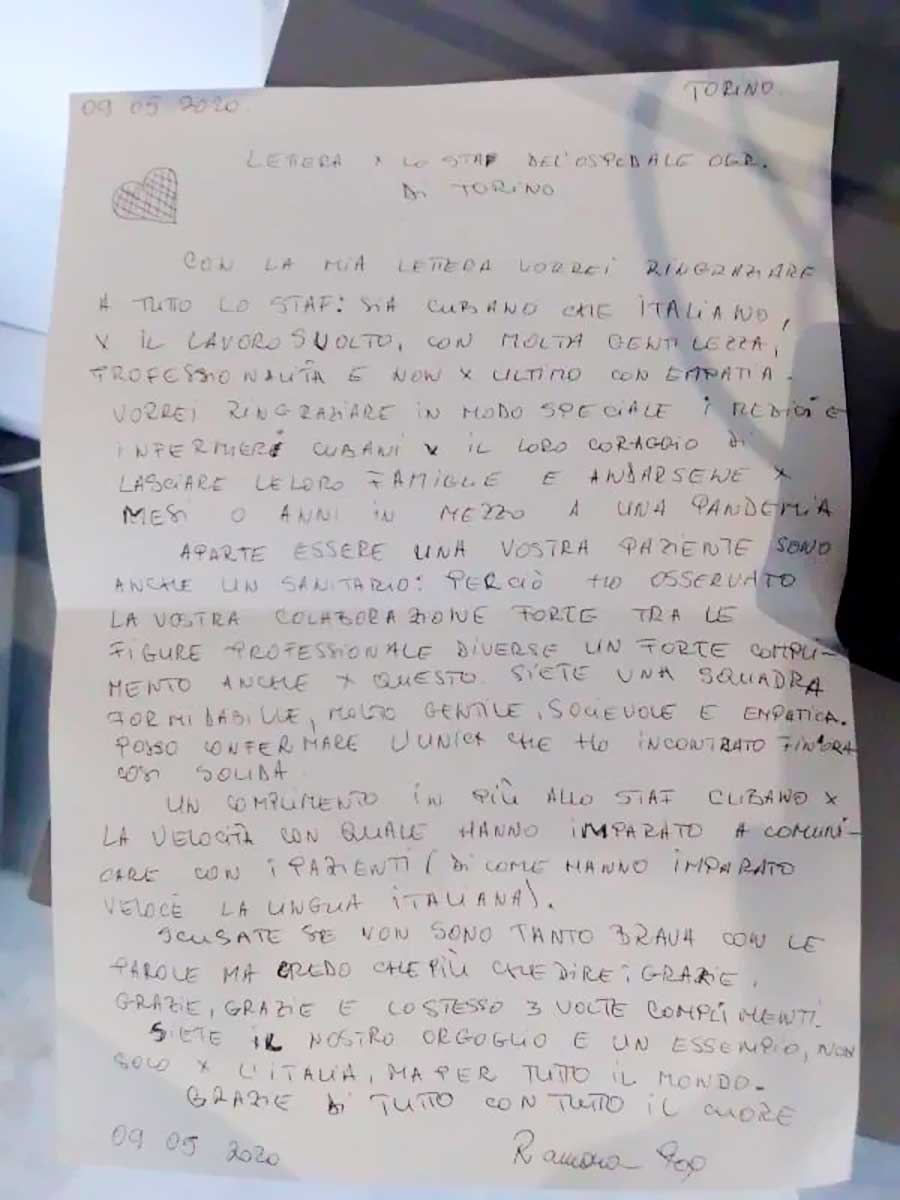 09 05 2020 TORINO
LETTERA x LO STAF DELL'OSPEDALE OGR.
Di TORINO
CON LA MIA LETTERA VORREI RINGRAZIARE
A TUTTO LO STAF: SIA CUBANO CHE ITALIANO,
x IL LAVORO SVOLTO, CON MOLTA GENTILEZZA,
PROFESSIONALITÀ E NON x ULTIMO CON EMPATIA.
VORREI RINGRAZIARE IN MODO SPECIALE i MEDICI E
INFERMIERI CUBANI x IL LORO CORAGGIO di
LASCIARE LE LORO FAMIGLIE E ANDARSENE x
MESI O ANNI IN MEZZO A UNA PANDEMIA
APARTE ESSERE UNA VOSTRA PAZIENTE SONO
ANCHE UN SANITARIO: PERCIÒ HO OSSERVATO
LA VOSTRA COLABORAZIONE FORTE TRA LE
FIGURE PROFESSIONALE DIVERSE UN FORTE COMPLI-
MENTO ANCHE x QUESTO. SIETE UNA SQUADRA
FORMIDABILLE, MOLTO GENTILE, SOCIEVOLE E EMPATICA.
POSSO CONFERMARE L'UNICA CHE HO INCONTRATO FIN'ORA
COSI SOLIDA
UN COMPLIMENTO IN PIÙ ALLO STAF CUBANO x
LA VELOCITÀ CON QUALE HANNO IMPARATO A COMUNI-
CARE CON I PAZIENTI (DI COME HANNO IMPARATO
VELOCE LA LINGUA ITALIANA).
SCUSATE SE NON SONO TANTO BRAVA CON LE
PAROLE MA CREDO CHE PIÙ CHE DIRE: GRAZIE,
GRAZIE, GRAZIE E LO STESSO 3 VOLTE COMPLIMENTI.
SIETE IL NOSTRO ORGOGLIO E UN ESSEMPIO, NON
SOLO x L'ITALIA, MA PER TUTTO IL MONDO.
GRAZIE di TUTTO CON TUTTO IL CUORE
09 05 2020 Ramona Pop